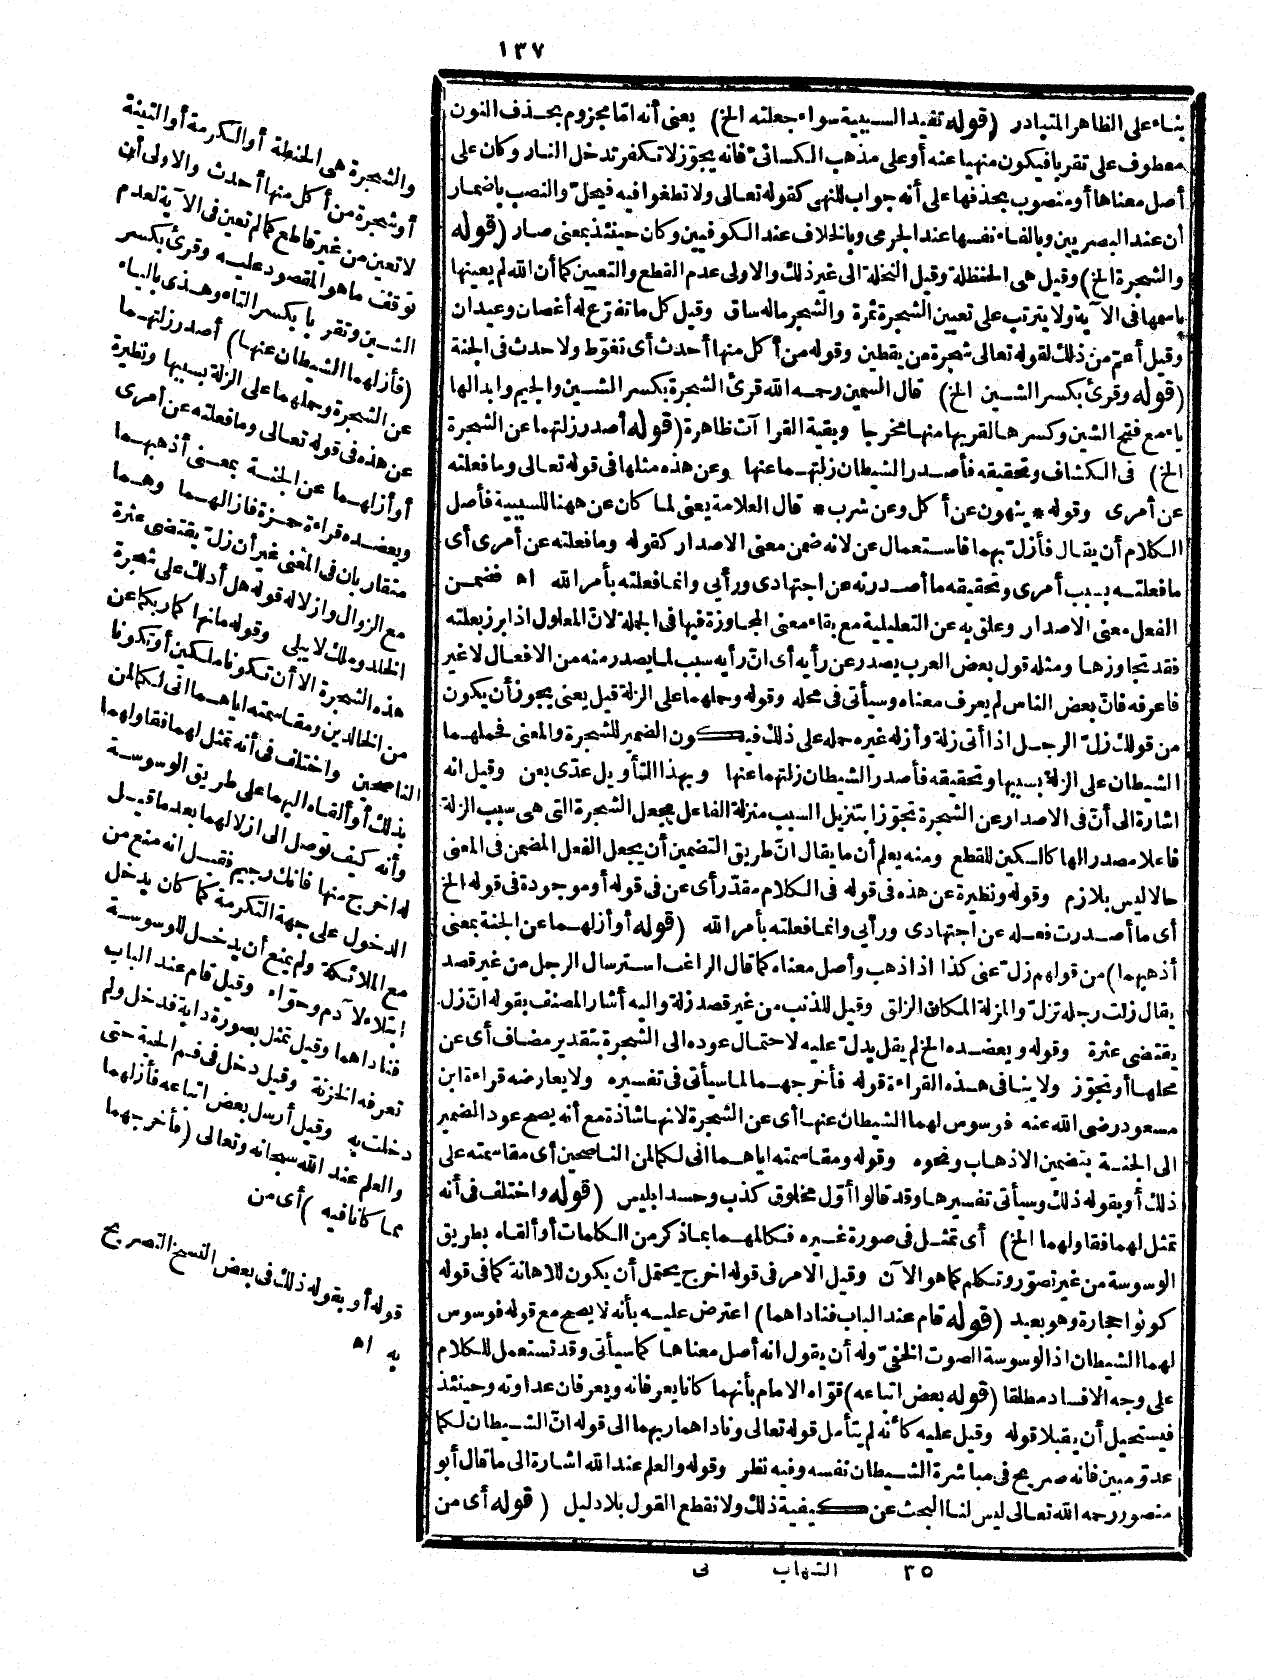 ١٣٧
بناء على الظاهر المتبادر (قوله تفيد السببية سواء جعلته الخ) يعنى أنه اما مجزوم بحذف النون
معطوف على تقربا فيكون منهيا عنه أو على مذهب الكسائى فانه يجوّز لا تكفر تدخل النار وكان على
أصل معناها أو منصوب بحذفها على أنه جواب للنهى كقوله تعالى ولا تطغوا فيه فيحل والنصب باضمار
أن عند البصريين وبالفاء نفسها عند الجرمى وبالخلاف عند الكوفيين وكان حينئذ بمعنى صار (قوله
والشجرة الخ) وقيل هى الحنظلة وقيل النخلة الى غير ذلك والاولى عدم القطع والتعيين كما أن الله لم يعينها
باسمها فى الآية ولا يترتب على تعيين الشجرة ثمرة والشجر ماله ساق وقيل كل ما تفرّع له أغصان وعيدان
وقيل أعمّ من ذلك لقوله تعالى شجرة من يقطين وقوله من أكل منها أحدث أى تغوّط ولا حدث فى الجنة
(قوله وقرئ بكسر الشين الخ) قال السمين رحمه الله قرئ الشجرة بكسر الشين والجيم وابدالها
ياء مع فتح الشين وكسرها لقربها منها مخرجا وبقية القرا آت ظاهرة (قوله أصدر زلتهما عن الشجرة
الخ) فى الكشاف وتحقيقه فأصدر الشيطان زلتهما عنها وعن هذه مثلها فى قوله تعالى وما فعلته
عن أمرى وقوله * ينهون عن أكل وعن شرب * قال العلامة يعنى لما كان عن ههنا للسببية فأصل
الكلام أن يقال فأزلّ بهما فاستعمال عن لانه ضمن معنى الاصدار كقوله وما فعلته عن أمرى أى
ما فعلته بسبب أمرى وتحقيقه ما أصدرته عن اجتهادى ورأيى وانما فعلته بأمر الله اه فضمن
الفعل معنى الاصدار وعلق به عن التعليلية مع بقاء معنى المجاوزة فيها فى الجملة لانّ المعلول اذا برز بعلته
فقد تجاوزها ومثله قول بعض العرب يصدر عن رأيه أى انّ رأيه سبب لما يصدر منه من الافعال لا غير
فاعرفه فانّ بعض الناس لم يعرف معناه وسيأتى فى محله وقوله وحملهما على الزلة قيل يعنى يجوز أن يكون
من قولك زلّ الرجل اذا أتى زلة وأزله غيره حمله على ذلك فيكون الضمير للشجرة والمعنى فحملهما
الشيطان على الزلة بسببها وتحقيقه فأصدر الشيطان زلتهما عنها وبهذا التأويل عدّى بعن وقيل انه
اشارة الى أنّ فى الاصدار عن الشجرة تجوّزا بتنزيل السبب منزلة الفاعل بجعل الشجرة التى هى سبب الزلة
فاعلا مصدرا لها كالسكين للقطع ومنه يعلم أن ما يقال انّ طريق التضمين أن يجعل الفعل المضمن فى المعنى
حالا ليس بلازم وقوله ونظيرة عن هذه فى قوله فى الكلام مقدّر أى عن فى قوله أو موجودة فى قوله الخ
أى ما أصدرت فعله عن اجتهادى ورأيى وانما فعلته بأمر الله (قوله أو أزلهما عن الجنة بمعنى
أذهبهما) من قولهم زلّ عنى كذا اذا ذهب وأصل معناه كما قال الراغب استرسال الرجل من غير قصد
يقال زلت رجله تزلّ والمزلة المكان الزلق وقيل للذنب من غير قصد زلة واليه أشار المصنف بقوله انّ زل
يقتضى عثرة وقوله ويعضده الخ لم يقل يدلّ عليه لاحتمال عوده الى الشجرة بتقدير مضاف أى عن
محلها أو تجوّز ولا ينافى هذه القراءة قوله فأخرجهما لما سيأتى فى تفسيره ولا يعارضه قراءة ابن
مسعود رضى الله عنه فوسوس لهما الشيطان عنها أى عن الشجرة لانها شاذة مع أنه يصح عود الضمير
الى الجنة بتضمين الاذهاب ونحوه وقوله ومقاسمته اياهما انى لكما لمن الناصحين أى مقاسمته على
ذلك أو بقوله ذلك وسيأتى تفسيرها وقد قالوا أوّل مخلوق كذب وحسد ابليس (قوله واختلف فى أنه
تمثل لهما فقاولهما الخ) أى تمثل فى صورة غيره فكالمهما بما ذكر من الكلمات أو ألقاه بطريق
الوسوسة من غير تصوّر وتكلم كما هو الآن وقيل الامر فى قوله اخرج يحتمل أن يكون للاهانة كما فى قوله
كونوا حجارة وهو بعيد (قوله قام عند الباب فناداهما) اعترض عليه بأنه لا يصح مع قوله فوسوس
لهما الشيطان اذ الوسوسة الصوت الخفىّ وله أن يقول انه أصل معناها كما سيأتى وقد تستعمل للكلام
على وجه الافساد مطلقا (قوله بعض اتباعه) قوّاه الامام بأنهما كانا يعرفانه ويعرفان عداوته وحينئذ
فيستحيل أن يقبلا قوله وقيل عليه كأنه لم يتأمل قوله تعالى وناداهما ربهما الى قوله انّ الشيطان لكما
عدوّ مبين فانه صريح فى مباشرة الشيطان نفسه وفيه نظر وقوله والعلم عند الله اشارة الى ما قال أبو
منصور رحمه الله تعالى ليس لنا البحث عن كيفية ذلك ولا نقطع القول بلا دليل (قوله أى من
والشجرة هى الحنطة أو الكرمة أو التينة
أو شجرة من أكل منها أحدث والاولى أن
لا تعين من غير قاطع كما لم تعين فى الآية لعدم
توقف ما هو المقصود عليه وقرئ بكسر
الشين وتقربا بكسر التاء وهذى بالياء
(فأزلهما الشيطان عنها) أصدر زلتهما
عن الشجرة وحملهما على الزلة بسببها ونظيرة
عن هذه فى قوله تعالى وما فعلته عن أمرى
أو أزلهما عن الجنة بمعنى أذهبهما
ويعضده قراءة حمزة فازالهما وهما
متقاربان فى المعنى غير أن زلّ يقتضى عثرة
مع الزوال وازلاله قوله هل أدلك على شجرة
الخلد وملك لا يبلى وقوله ما نهاكما ربكما عن
هذه الشجرة الا أن تكونا ملكين أو تكونا
من الخالدين ومقاسمته اياهما انى لكما لمن
الناصحين واختلف فى أنه تمثل لهما فقاولهما
بذلك أو ألقاه اليهما على طريق الوسوسة
وأنه كيف توصل الى ازلالهما بعد ما قيل
له اخرج منها فانك رجيم فقيل انه منع من
الدخول على جهة التكرمة كما كان يدخل
مع الملائكة ولم يمنع أن يدخل للوسوسة
ابتلاء لآدم وحوّاء وقيل قام عند الباب
فناداهما وقيل تمثل بصورة دابة فدخل ولم
تعرفه الخزنة وقيل دخل فى فم الحية حتى
دخلت به وقيل أرسل بعض اتباعه فأزلهما
والعلم عند الله سبحانه وتعالى (فأخرجهما
مما كانا فيه) أى من
قوله أو بقوله ذلك فى بعض النسخ التصريح
به اه
٣٥ الشهاب نى